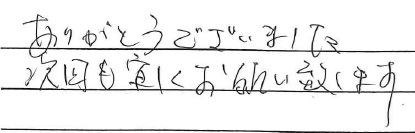 ありがとうございました
次回も宜しくお願い致します